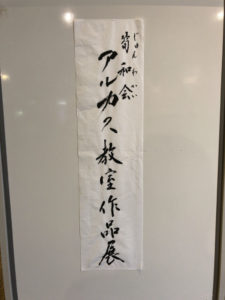 じゅんわかい
筍和会
アルカス教室作品展